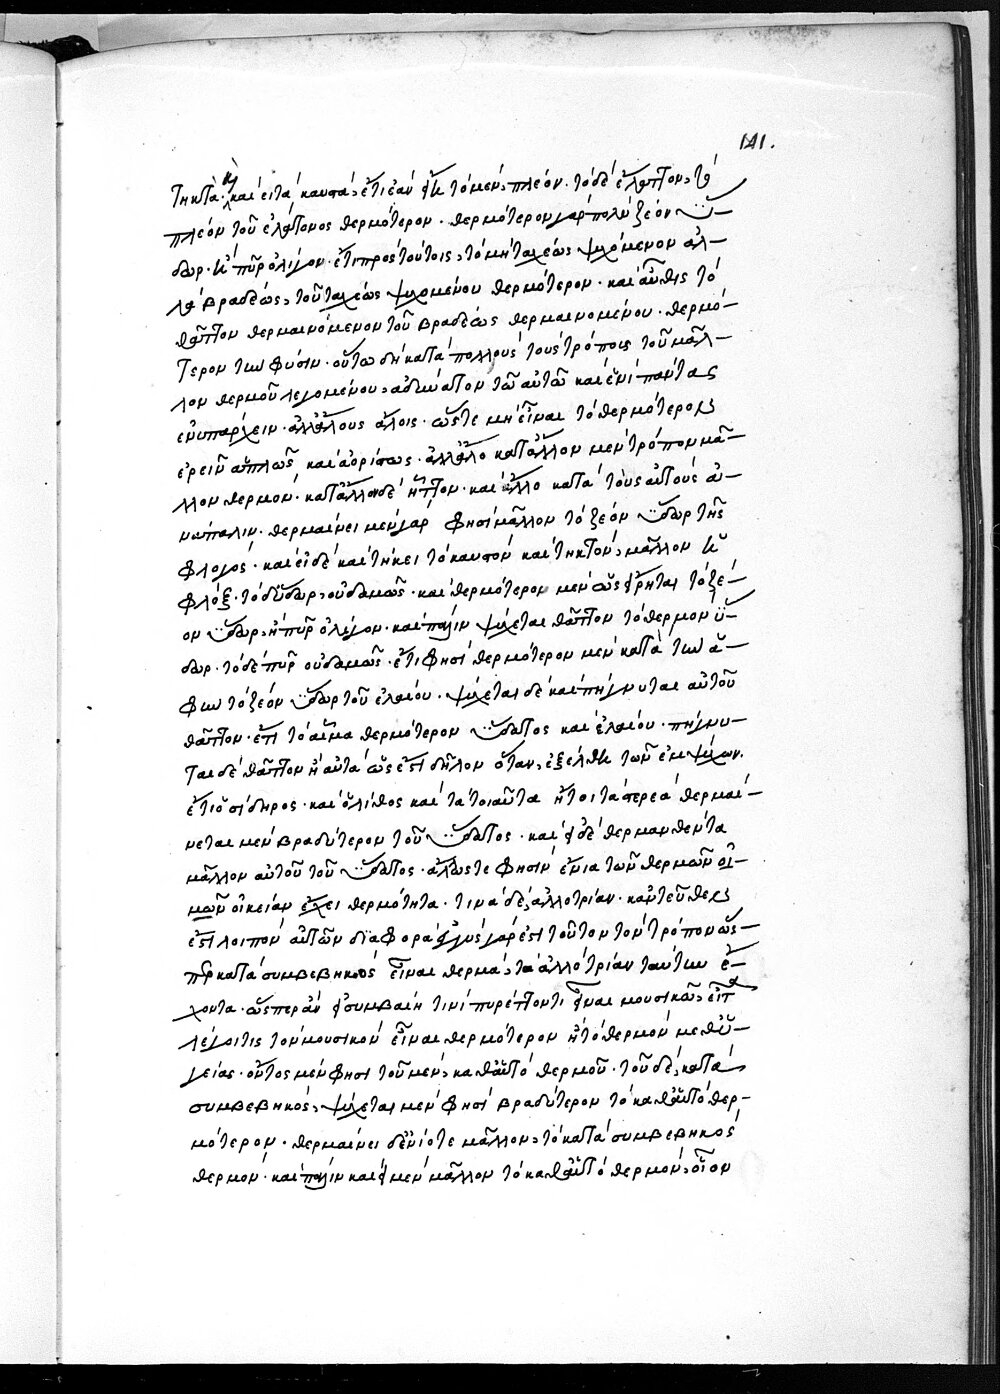 141.
τηκτὰ· ἢ καὶ εἰ τὰ καυστά, ἔτι ἐὰν ᾖ τὸ μὲν, πλέον· τὸ δὲ ἔλαττον, τὸ
πλέον τοῦ ἐλάττονος θερμότερον· θερμότερον γὰρ πολὺ ζέον ὕ-
δωρ· ἢ πῦρ ὀλίγον· ἔτι πρὸς τούτοις, τὸ μὴ ταχέως ψυχόμενον ἀλ-
λὰ βραδέως, τοῦ ταχέως ψυχομένου θερμότερον· καὶ αὖθις τὸ
θᾶττον θερμαινόμενον τοῦ βραδέως θερμαινομένου· θερμό-
τερον τὴν φύσιν· οὕτω δὴ κατὰ πολλοὺς τοὺς τρόπους τοῦ μᾶλ-
λον θερμοῦ λεγομένου, ἀδύνατον τῷ αὐτῷ καὶ ἑνὶ πάντας
ἐνυπάρχειν· ἀλλ' ἄλλους ἄλλοις· ὥστε μὴ εἶναι τὸ θερμότερον
ἐρεῖν ἁπλῶς καὶ ἀορίστως· ἀλλ' ἄλλο κατ' ἄλλον μὲν τρόπον μᾶ-
λλον θερμόν· κατ' ἄλλον δὲ ἧττον· καὶ ἄλλο κατὰ τοὺς αὐτοὺς ἀ-
νάπαλιν· θερμαίνει μὲν γάρ φησι μᾶλλον τὸ ζέον ὕδωρ τῆς
φλογός· καὶ εἰ δὲ καὶ τήκει τὸ καυστὸν καὶ τηκτόν, μᾶλλον ἡ
φλόξ· τὸ δ' ὕδωρ, οὐδαμῶς· καὶ θερμότερον μὲν ὡς εἴρηται τὸ ζέ-
ον ὕδωρ, ἢ πῦρ ὀλίγον· καὶ πάλιν ψύχεται θᾶττον τὸ θερμὸν ὕ-
δωρ· τὸ δὲ πῦρ οὐδαμῶς· ἔτι φησὶ θερμότερον μὲν κατὰ τὴν ἁ-
φὴν τὸ ζέον ὕδωρ τοῦ ἐλαίου· ψύχεται δὲ καὶ πήγνυται αὐτοῦ
θᾶττον· ἔτι τὸ αἷμα θερμότερον ὕδατος καὶ ἐλαίου· πήγνυ-
ται δὲ θᾶττον ἢ αὐτὰ ὡς ἔστι δῆλον ὅταν, ἐξέλθῃ τῶν ἐμψύχων.
ἔτι ὁ σίδηρος· καὶ ὁ λίθος καὶ τὰ τοιαῦτα ἤτοι τὰ στερεὰ θερμαί-
νεται μὲν βραδύτερον τοῦ ὕδατος· καίει δὲ θερμανθέντα
μᾶλλον αὐτοῦ τοῦ ὕδατος· ἄλλως τε φησὶν ἔνια τῶν θερμῶν
οἰκείαν ἔχει θερμότητα· τινὰ δὲ, ἀλλοτρίαν· κἀντεῦθεν
ἔστι λοιπὸν αὐτῶν διαφορά· ἐγγὺς γάρ ἐστι τοῦτον τὸν τρόπον ὥσ-
περ κατὰ συμβεβηκὸς εἶναι θερμά, τὰ ἀλλοτρίαν ταύτην ἔ-
χοντα· ὥσπερ ἂν εἰ συμβαίη τινὶ πυρέττοντι εἶναι μουσικῷ, εἶτα
λέγοι τις τὸν μουσικὸν εἶναι θερμότερον ἢ τὸ θερμὸν μεθ' ὑ-
γείας· οὗτος μέν φησι τοῦ μὲν, καθ' αὑτὸ θερμοῦ· τοῦ δὲ, κατὰ
συμβεβηκός, ψύχεται μέν φησὶ βραδύτερον τὸ καθ' αὑτὸ θερ-
μότερον· θερμαίνει δ' ἐνίοτε μᾶλλον, τὸ κατὰ συμβεβηκὸς
θερμόν· καὶ πάλιν καίει μὲν μᾶλλον τὸ καθ' αὑτὸ θερμόν, οἷον